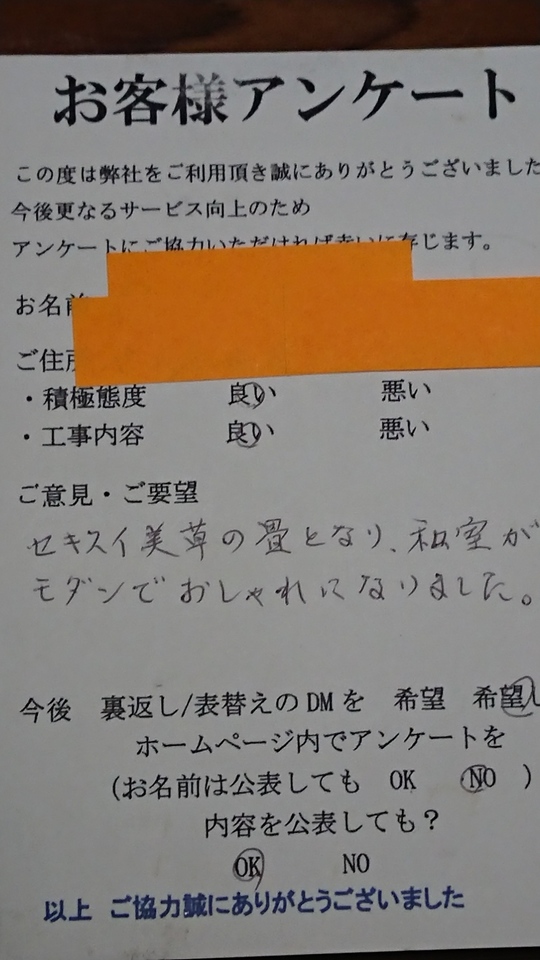 お客様アンケート
この度は弊社をご利用頂き誠にありがとうございました
今後更なるサービス向上のため
アンケートにご協力いただければ幸いに存じます。
お名前
ご住所
・積極態度 良い 悪い
・工事内容 良い 悪い
ご意見・ご要望
セキスイ美草の畳となり、和室が
モダンでおしゃれになりました。
今後 裏返し/表替えのDMを 希望 希望し
ホームページ内でアンケートを
(お名前は公表しても OK NO )
内容を公表しても?
OK NO
以上 ご協力誠にありがとうございました